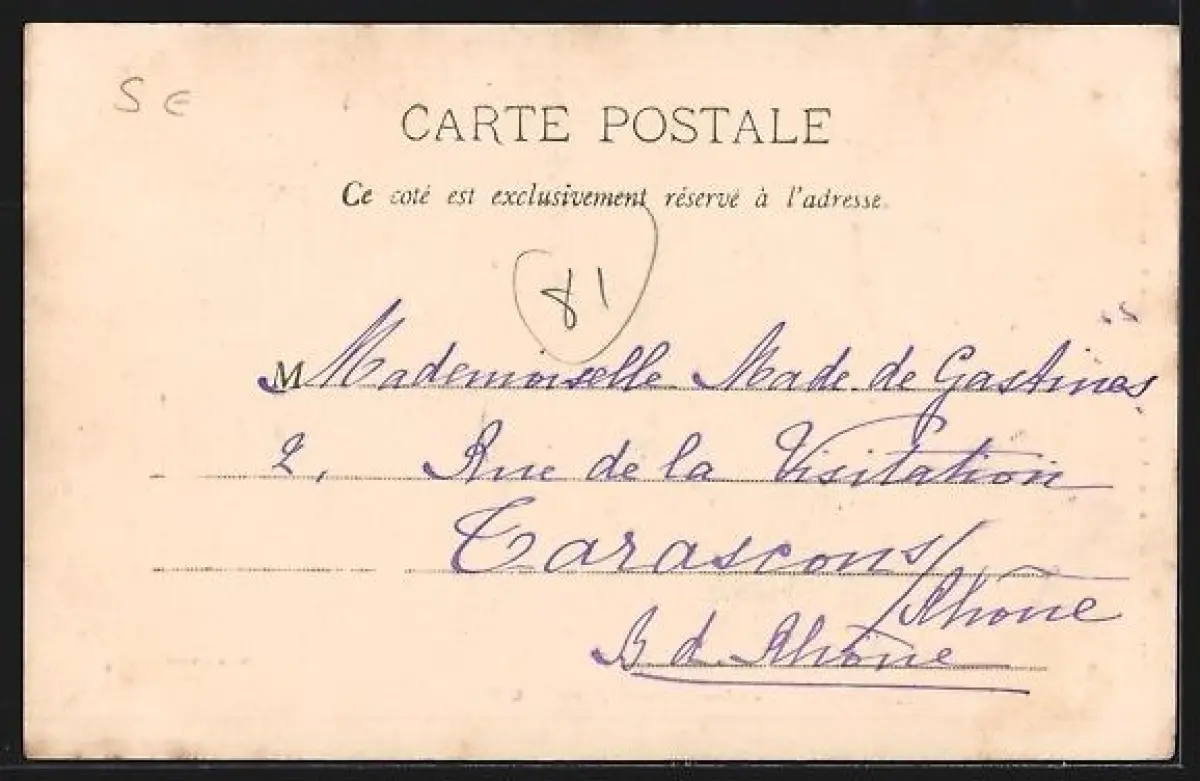 5 €
CARTE POSTALE
Ce coté est exclusivement réservé à l'adresse.
81
M Mademoiselle Made. de Gastines
2, Rue de la Visitation
Tarascons/
/Rhône
B. d. Rhône